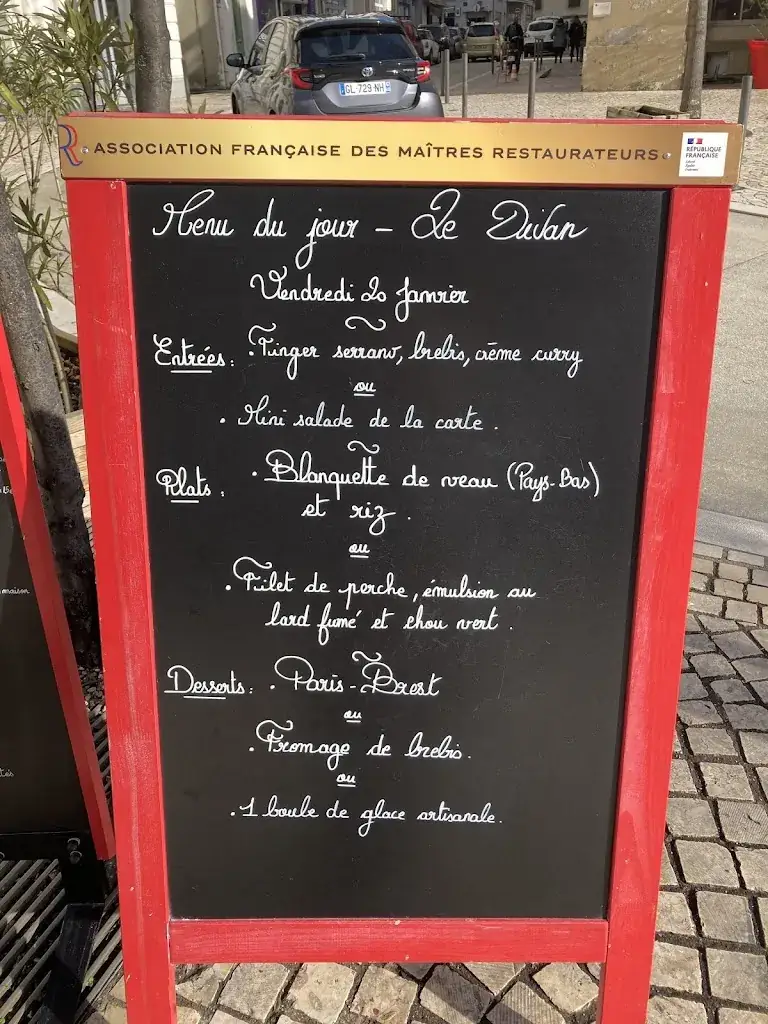 GL-729-NH
R ASSOCIATION FRANÇAISE DES MAÎTRES RESTAURATEURS
RÉPUBLIQUE
FRANÇAISE
Menu du jour - Le Divan
Vendredi 20 Janvier
Entrées : . Finger serrano, brebis, crème curry
ou
. Mini salade de la carte .
Plats : . Blanquette de veau (Pays-Bas)
et riz .
ou
. Filet de perche, émulsion au
lard fumé et chou vert .
Desserts : . Paris-Brest
ou
. Fromage de brebis .
ou
. 1 boule de glace artisanale .
maison